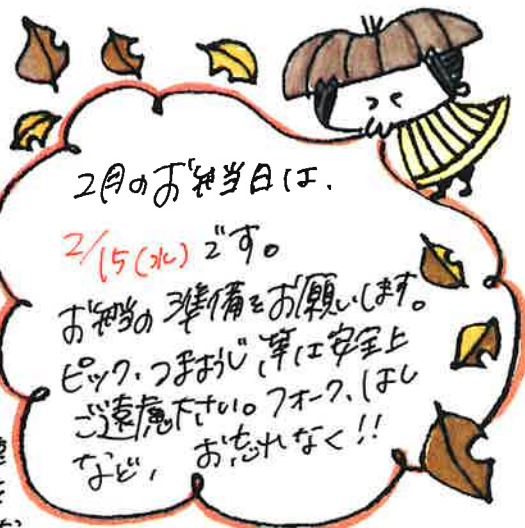 2月のお弁当日は、
2/15(水)です。
お弁当の準備をお願いします。
ピック、つまようじ等は安全上
ご遠慮下さい。フォーク、はし
など、お忘れなく!!